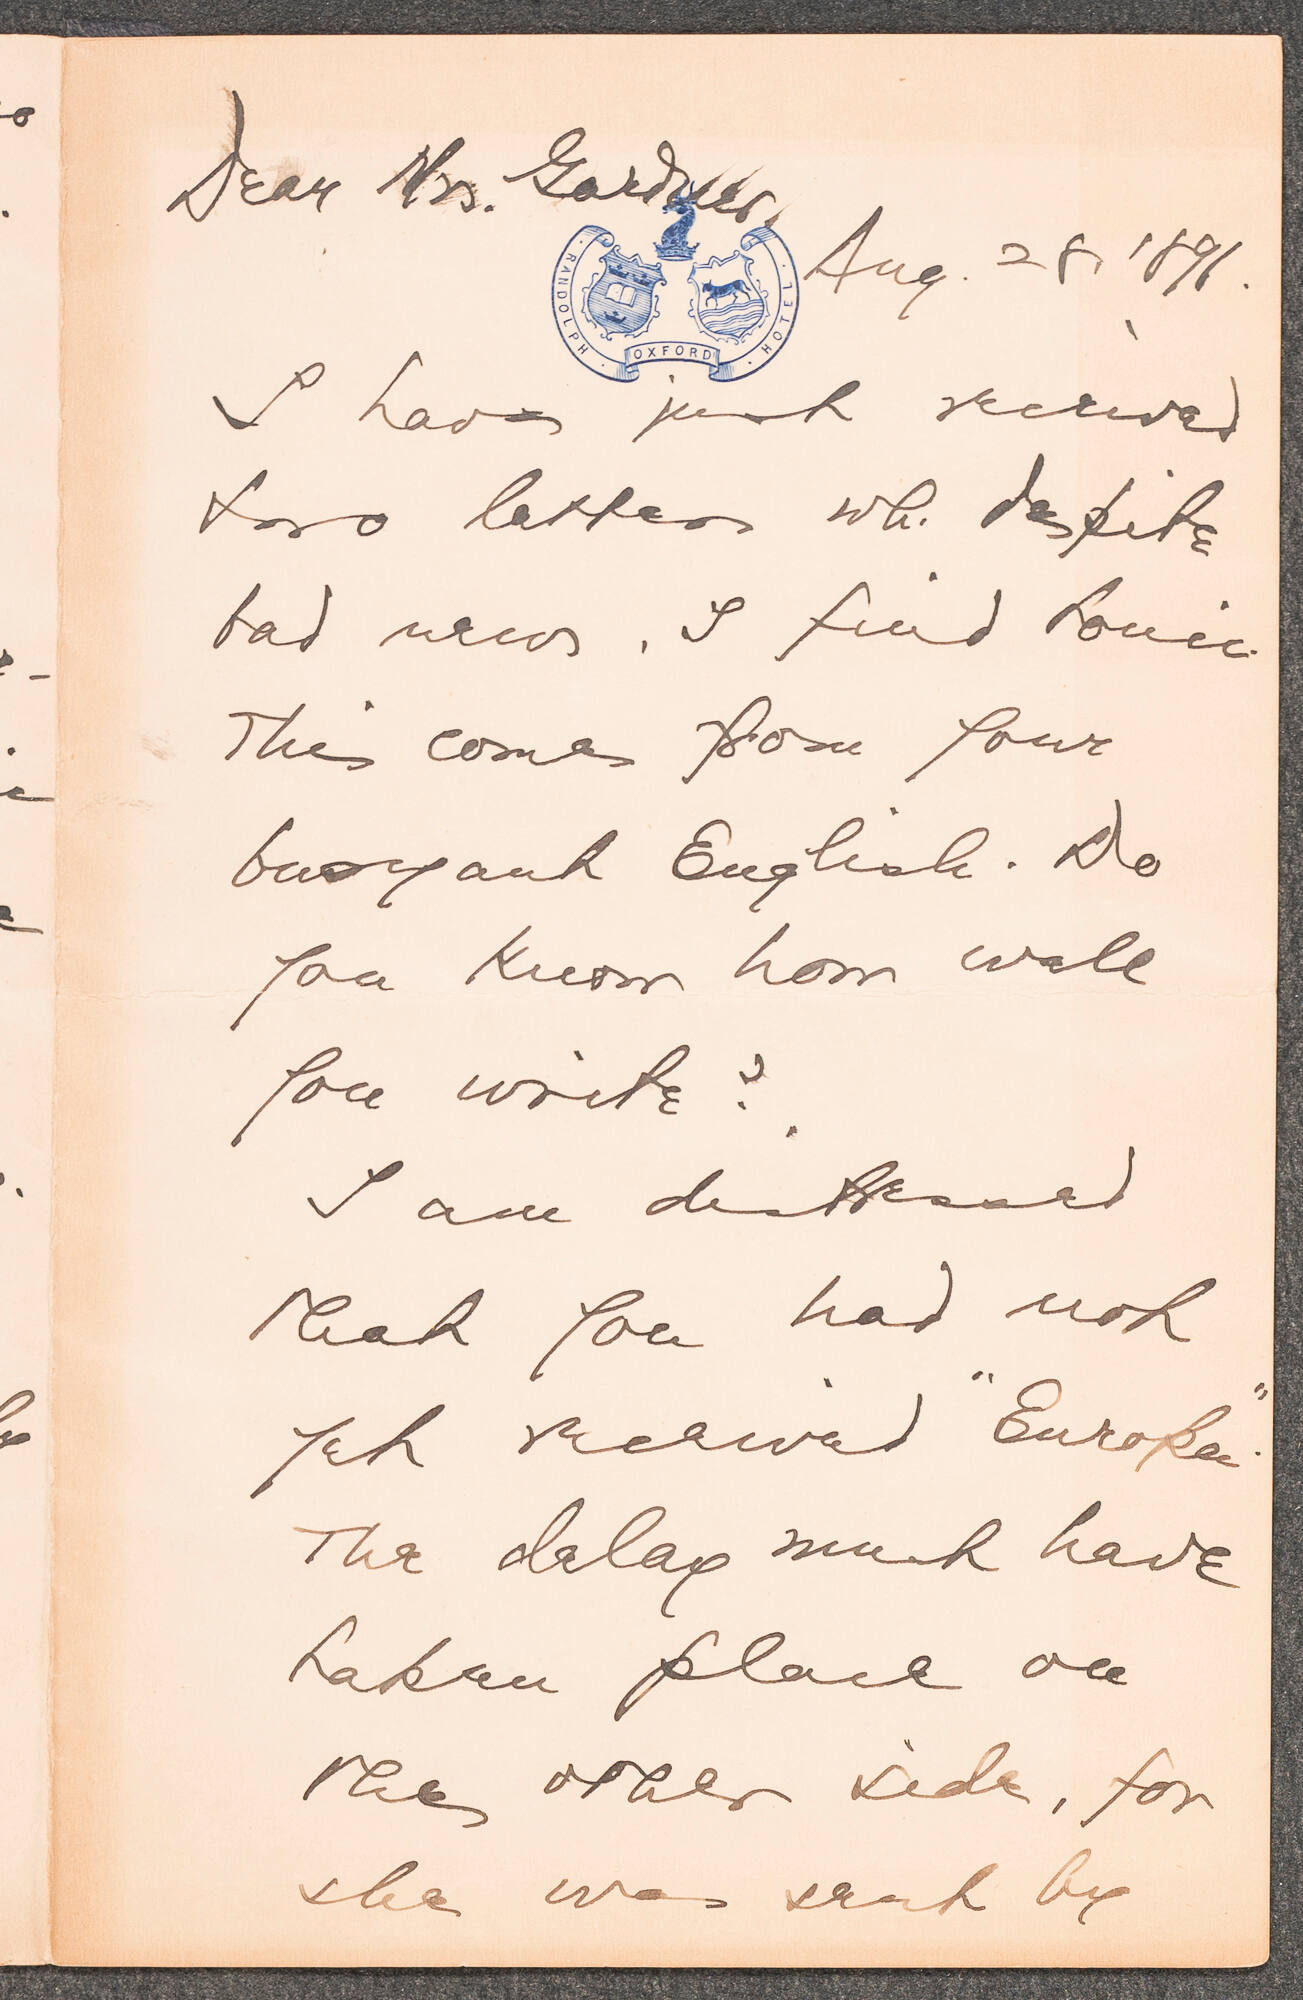 Dear Mrs. Gardner,
RANDOLPH · OXFORD · HOTEL
Aug. 28, 1896.
I have just received
two letters wh. despite
bad news, I find tonic.
This comes from your
buoyant English. Do
you know how well
you write?
I am distressed
that you had not
yet received "Europa".
The delay must have
taken place on
the other side, for
she was sent by